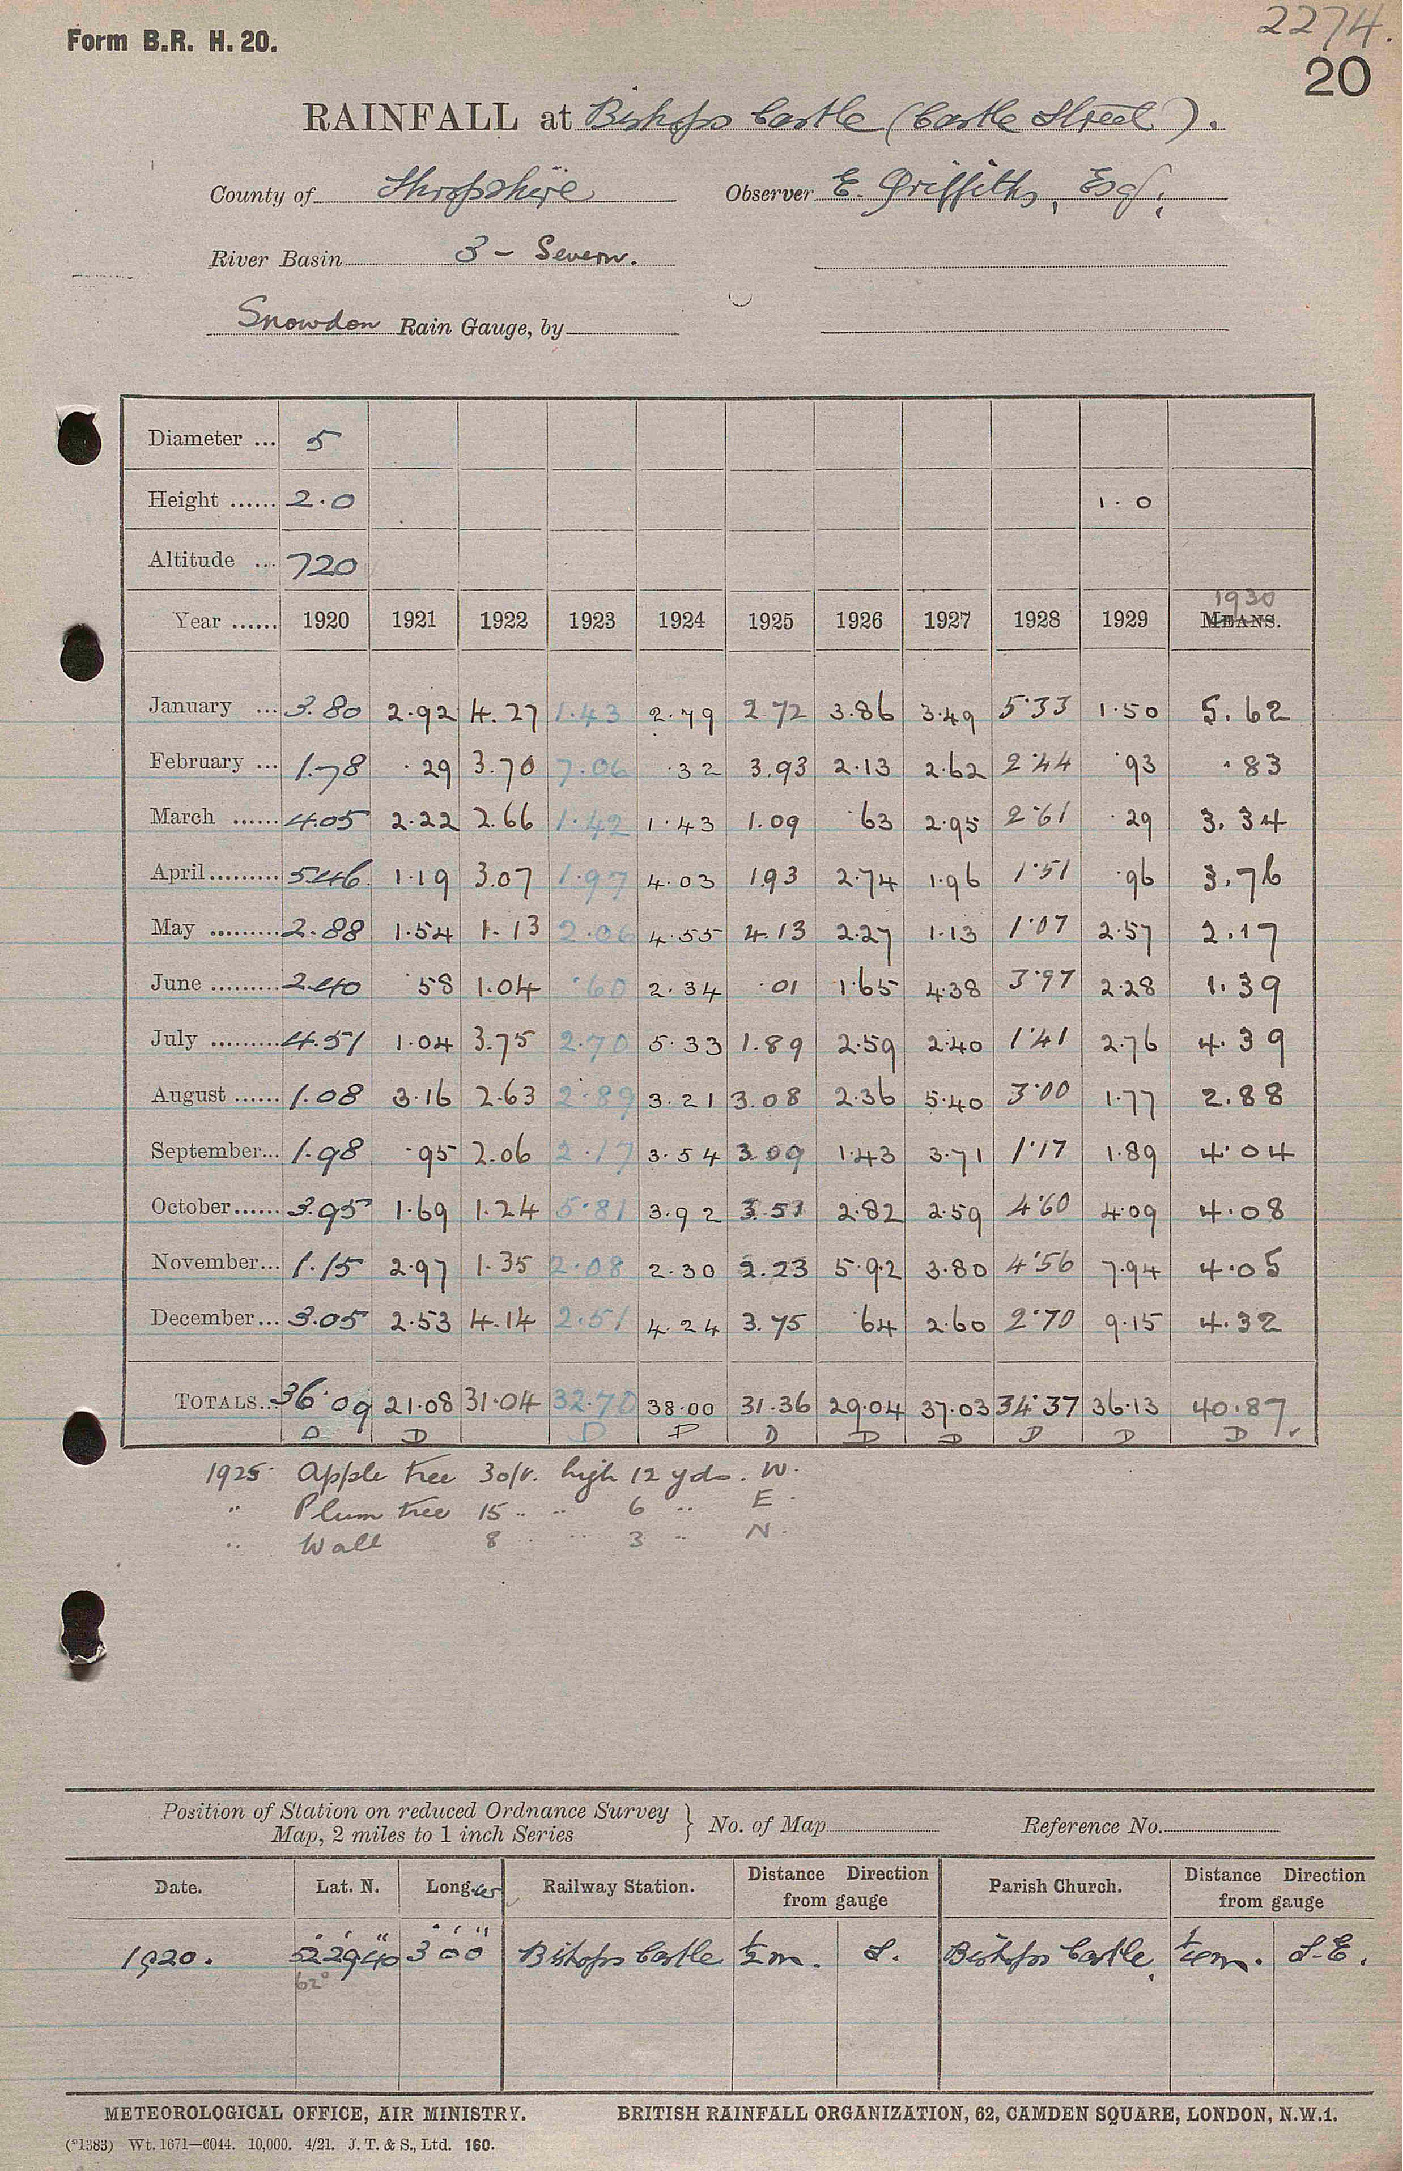 2274.
Form B.R. H. 20.
20
RAINFALL at Bishops Castle (Castle Street).
County of Shropshire Observer E. Griffiths, Esq.
River Basin 3 - Severn.
Snowdon Rain Gauge, by
Diameter ... 5
Height ...... 2.0 1.0
Altitude ... 720
1930
Year ...... 1920 1921 1922 1923 1924 1925 1926 1927 1928 1929 MEANS.
January ... 3.80 2.92 4.27 1.43 2.79 2.72 3.86 3.49 5.33 1.50 5.62
February ... 1.78 .29 3.70 7.06 .32 3.93 2.13 2.62 2.44 .93 .83
March ...... 4.05 2.22 2.66 1.42 1.43 1.09 .63 2.95 2.61 .29 3.34
April ......... 5.46 1.19 3.07 1.97 4.03 1.93 2.74 1.96 1.51 .96 3.76
May ......... 2.88 1.54 1.13 2.06 4.55 4.13 2.27 1.13 1.07 2.57 2.17
June ......... 2.40 .58 1.04 .60 2.34 .01 1.65 4.38 3.97 2.28 1.39
July ......... 4.51 1.04 3.75 2.70 5.33 1.89 2.59 2.40 1.41 2.76 4.39
August ...... 1.08 3.16 2.63 2.89 3.21 3.08 2.36 5.40 3.00 1.77 2.88
September... 1.98 .95 2.06 2.17 3.54 3.09 1.43 3.71 1.17 1.89 4.04
October...... 3.95 1.69 1.24 5.81 3.92 3.51 2.82 2.59 4.60 4.09 4.08
November... 1.15 2.97 1.35 2.08 2.30 2.23 5.92 3.80 4.56 7.94 4.05
December... 3.05 2.53 4.14 2.51 4.24 3.75 .64 2.60 2.70 9.15 4.32
TOTALS... 36.09 21.08 31.04 32.70 38.00 31.36 29.04 37.03 34.37 36.13 40.87
D D D D D D D D D D
1925 Apple tree 30ft. high 12 yds. W.
" Plum tree 15 " " 6 " E.
" Wall 8 " " 3 " N.
Position of Station on reduced Ordnance Survey
Map, 2 miles to 1 inch Series } No. of Map Reference No.
Date. Lat. N. Long. W Railway Station. Distance Direction from gauge Parish Church. Distance Direction from gauge
1920. 52° 29' 40" 3° 0' 0" Bishops Castle ½ m. S. Bishops Castle. ¼ m. S.E.
62°
METEOROLOGICAL OFFICE, AIR MINISTRY. BRITISH RAINFALL ORGANIZATION, 62, CAMDEN SQUARE, LONDON, N.W.1.
(*1383) Wt. 1671—6044. 10,000. 4/21. J. T. & S., Ltd. 160.